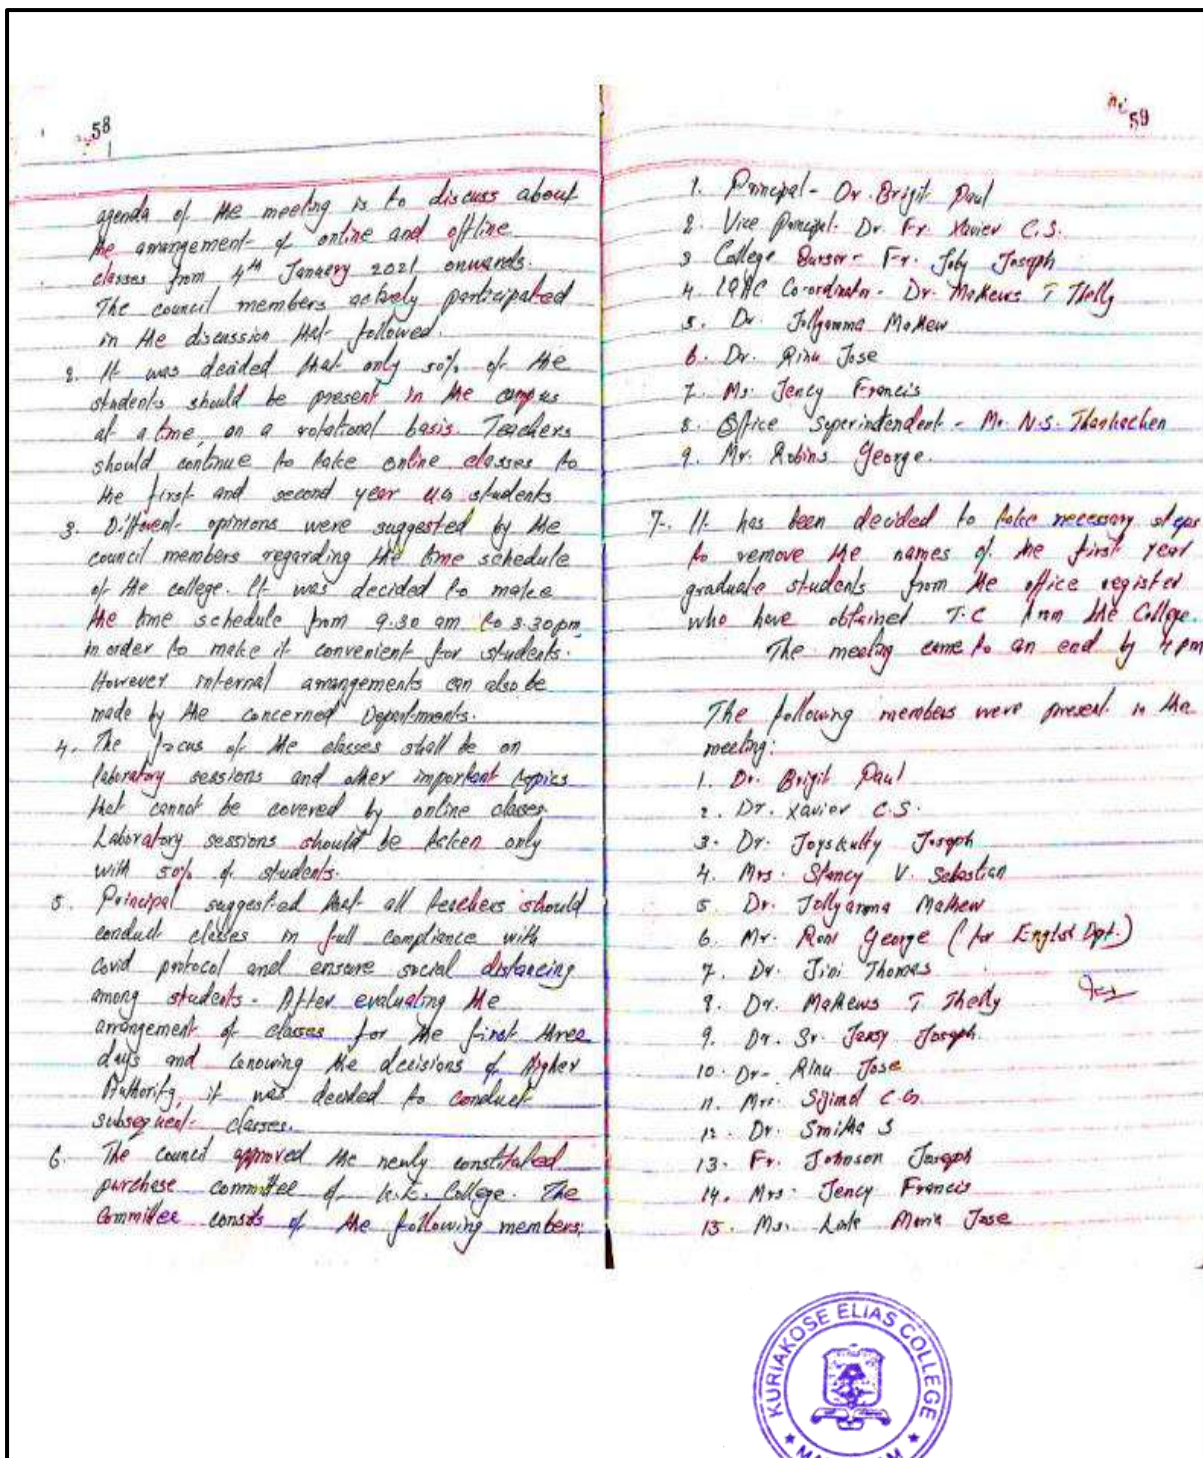 58
agenda of the meeting is to discuss about
the arrangement of online and offline
classes from 4th January 2021 onwards.
The council members actively participated
in the discussion that followed.
2. It was decided that only 50% of the
students should be present in the campus
at a time, on a rotational basis. Teachers
should continue to take online classes to
the first and second year UG students
3. Different opinions were suggested by the
council members regarding the time schedule
of the college. It was decided to make
the time schedule from 9.30 am to 3.30pm
in order to make it convenient for students.
However internal arrangements can also be
made by the concerned Departments.
4. The focus of the classes shall be on
laboratory sessions and other important topics
that cannot be covered by online classes.
Laboratory sessions should be taken only
with 50% of students.
5. Principal suggested that all teachers should
conduct classes in full compliance with
covid protocol and ensure social distancing
among students. After evaluating the
arrangement of classes for the first three
days and knowing the decisions of Higher
Authority, it was decided to conduct
subsequent classes.
6. The council approved the newly constituted
purchase committee of K.E. College. The
Committee consits of the following members:
59
1. Principal - Dr. Brigit Paul
2. Vice Principal - Dr. Fr. Xavier C.S.
3 College Bursar - Fr. Joby Joseph
4. IQAC Co-ordinator - Dr. Mathews T Thelly
5. Dr. Jollyamma Mathew
6. Dr. Rinu Jose
7. Ms. Jency Francis
8. Office Superintendent - Mr. N.S. Thankachen
9. Mr. Robins George.
7. It has been decided to take necessary steps
to remove the names of the first year
graduate students from the office register
who have obtained T.C from the College.
The meeting came to an end by 4pm
The following members were present in the
meeting:
1. Dr. Brigit Paul
2. Dr. Xavier C.S.
3. Dr. Joyskutty Joseph
4. Mrs. Stancy V. Sebastian
5 Dr. Jollyamma Mathew
6. Mr. Roni George (for English Dpt.)
7. Dr. Jini Thomas
8. Dr. Mathews T Thelly
9. Dr. Sr. Jessy Joseph.
10. Dr- Rinu Jose
11. Mrs. Sijimol C.G.
12. Dr. Smitha S
13. Fr. Johnson Joseph
14. Mrs. Jency Francis
15. Ms. Maria Jose
KURIAKOSE ELIAS COLLEGE